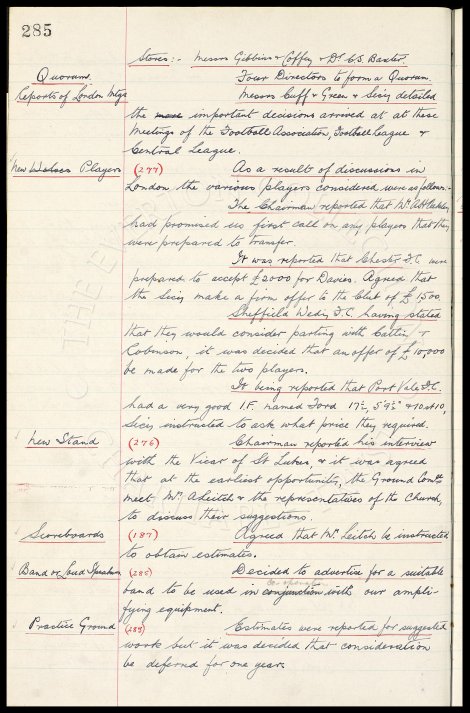 285
Stores:- Messrs Gibbins & Coffey & Dr. C.S. Baxter.
Quorum. Four Directors to form a Quorum.
Reports of London Mtgs Messrs Cuff & Green & Secy detailed
the important decisions arrived at at these
Meetings of the Football Association, Football League &
Central League.
New Players (277) As a result of discussions in
London the various players considered were as follows:-
The Chairman reported that Mr.
had promised us first call on any players that they
were prepared to transfer.
It was reported that Chester F.C. were
prepared to accept £2000 for Davies. Agreed that
the Secy make a firm offer to the Club of £1500.
Sheffield Wedy F.C. having stated
that they would consider parting with Catlin &
Robinson, it was decided that an offer of £10,000
be made for the two players.
It being reported that Port Vale F.C.
had a very good I.F. named Ford 17½, 5'9½" & 10st 10,
Secy instructed to ask what price they required.
New Stand (276) Chairman reported his interview
with the Vicar of St Lukes & it was agreed
that at the earliest opportunity, the Ground Comtte
meet Mr. A Leitch & the representatives of the Church,
to discuss their suggestions.
Scoreboards (187) Agreed that Mr. Leitch be instructed
to obtain estimates.
Band or Loud Speakers (285) Decided to advertise for a suitable
co-operation
band to be used in conjunction with our ampli-
fying equipment.
Practice Ground (288) Estimates were reported for suggested
work but it was decided that consideration
be deferred for one year.